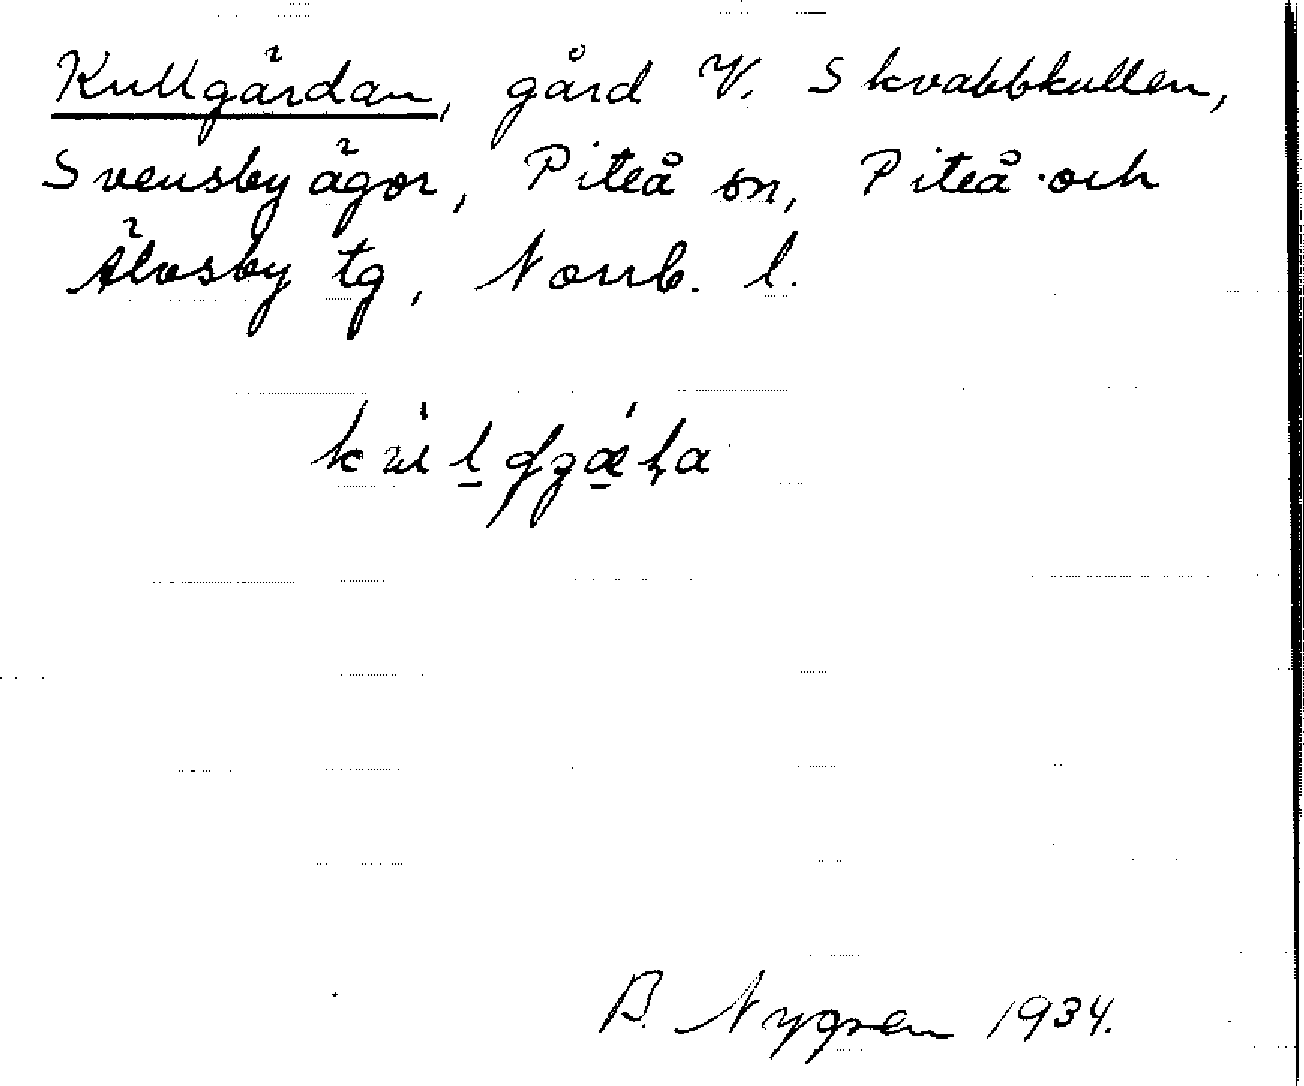 Kullgärdan, gård V. Skvabbkullen,
Svensby ägor, Piteå sn, Piteå och
Älvsby tg, Norrb. l.
B. Nygren 1934.